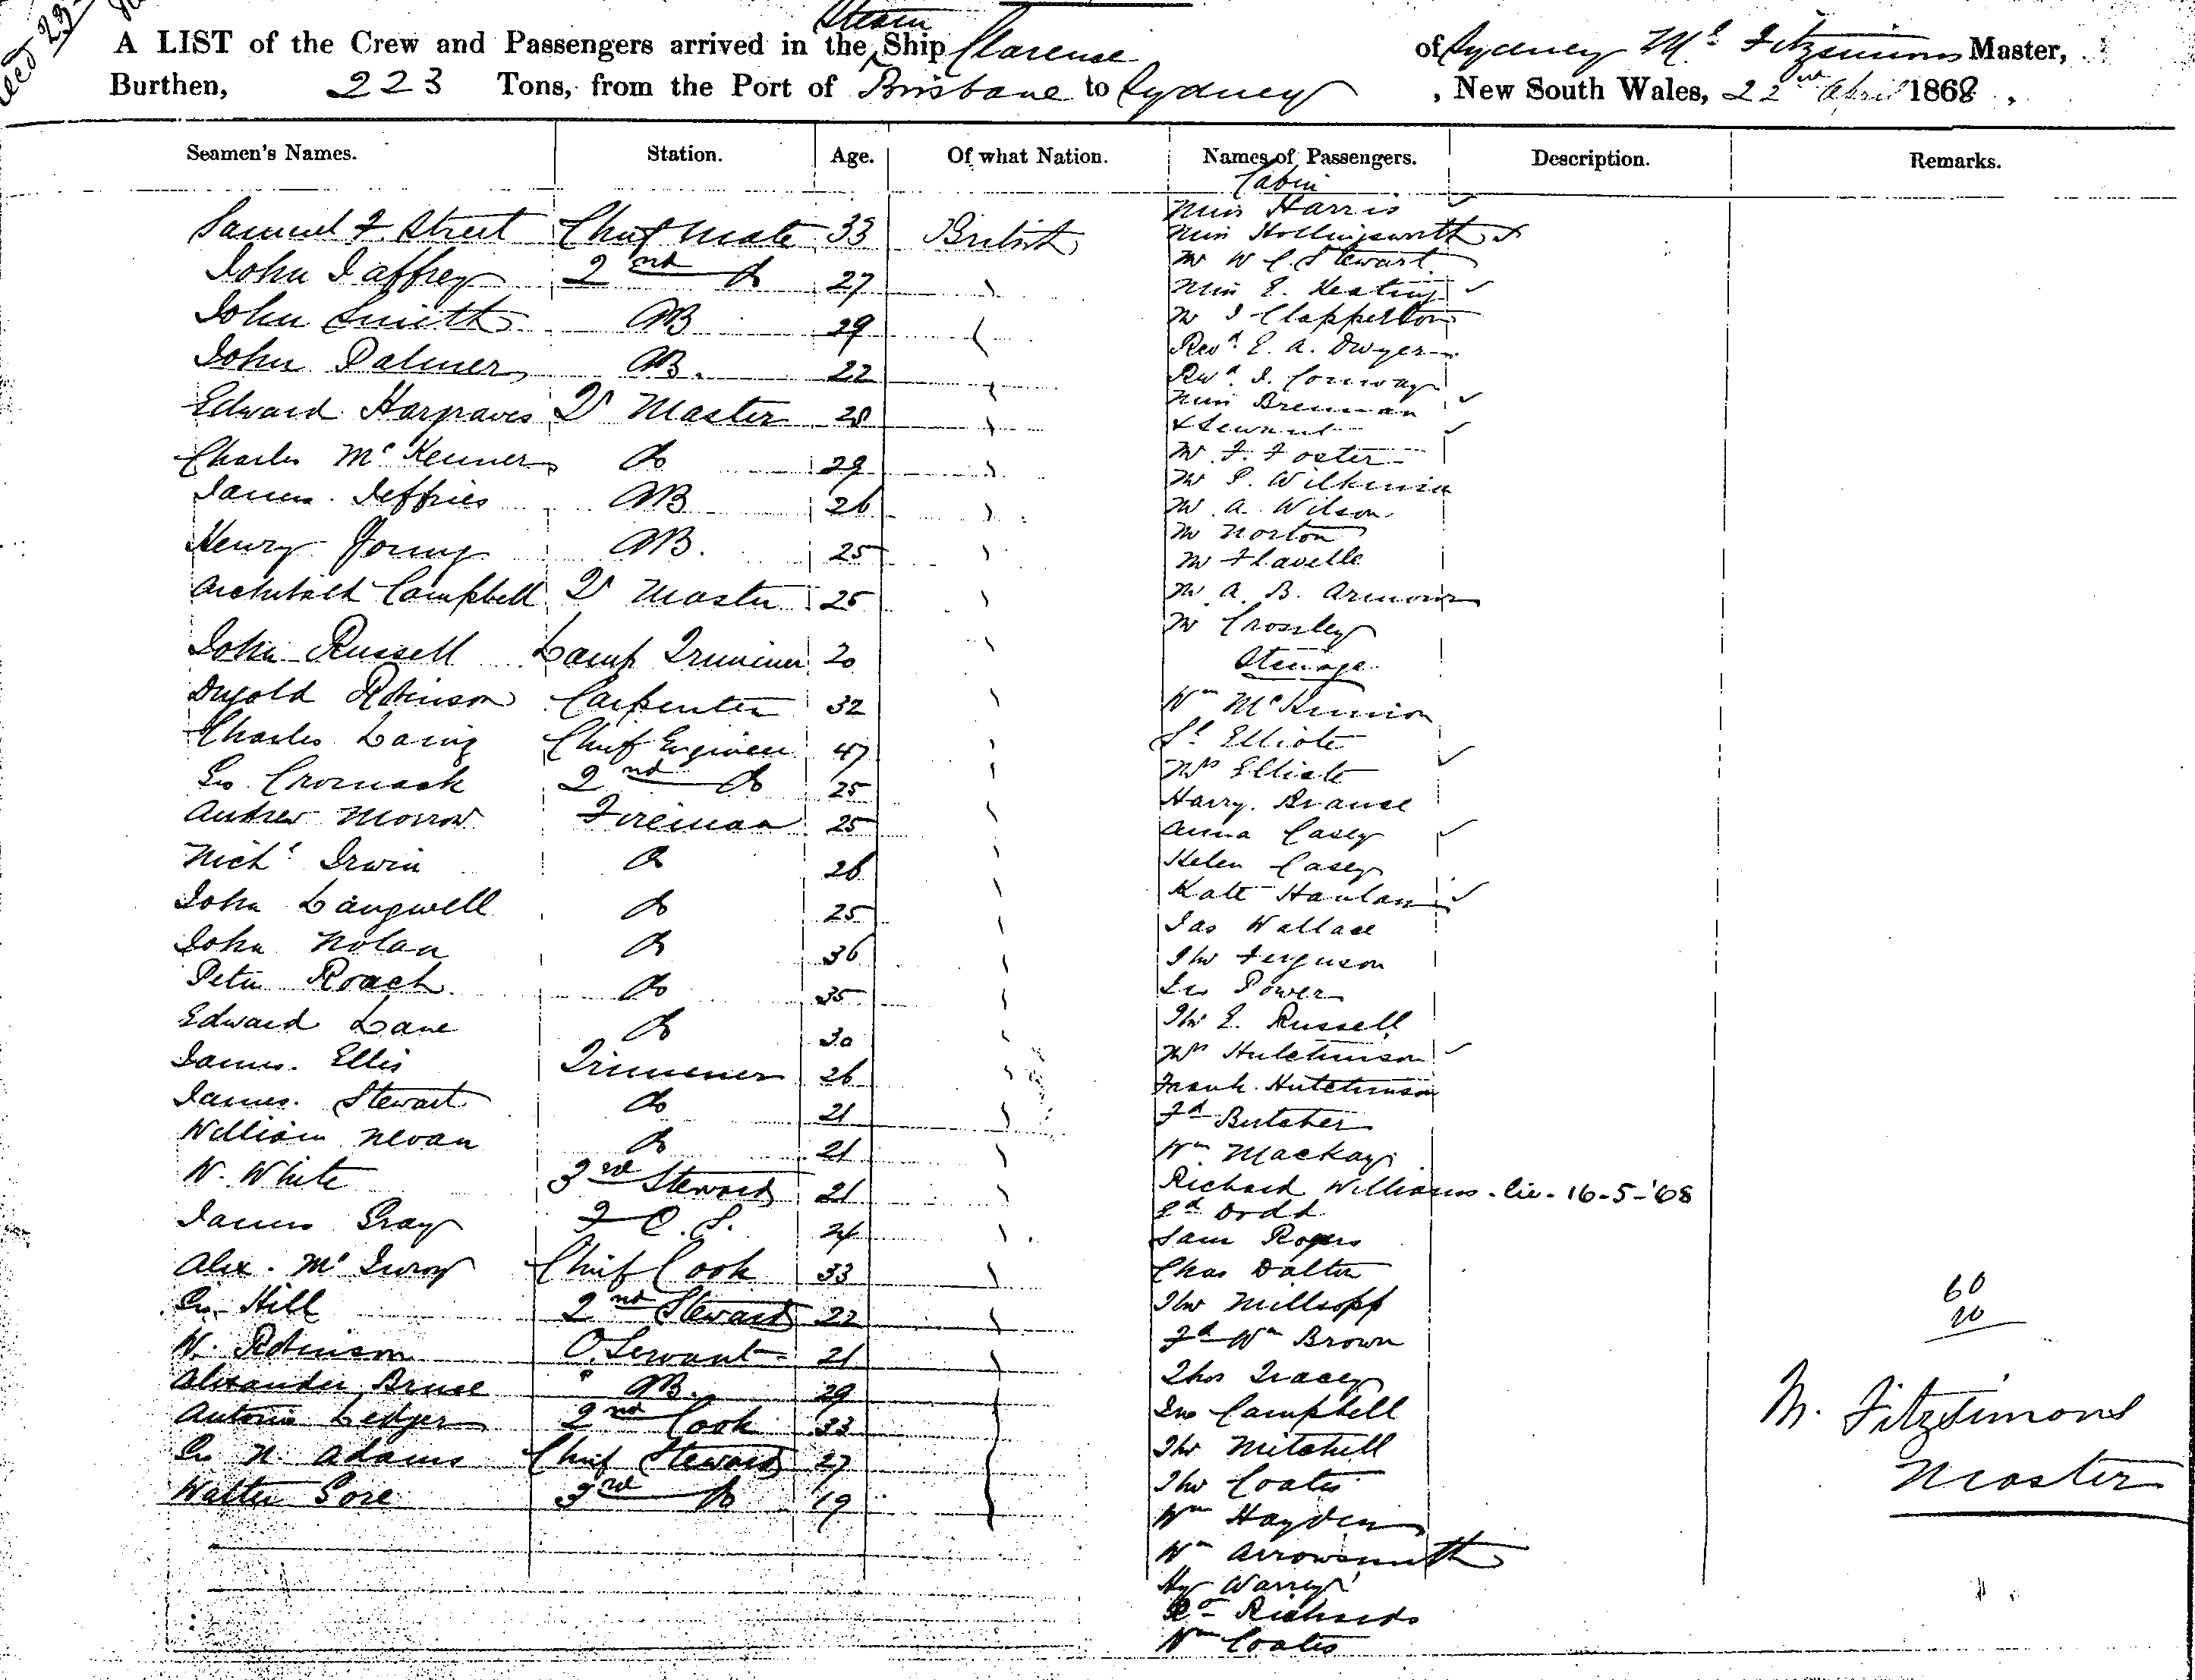 Steam
A LIST of the Crew and Passengers arrived in the Ship Clarence of Sydney Ml Fitzsimons Master,
Burthen, 223 Tons, from the Port of Brisbane to Sydney, New South Wales, 22nd April 1868,
Seamen's Names. Station. Age. Of what Nation. Names of Passengers. Description. Remarks.
Cabin
Miss Harris
Samuel F. Street Chief Mate 33 British
Miss Hollingsworth
John Jaffrey 2nd Do 27
Mr W C. Stewart
Miss E. Keating
John Smith AB 29
Mr J Clapperton
Revd E. A. Dwyer
John Palmer AB. 22
Revd J. Conway
Miss Brennan
Edward Hargraves Qr Master 28
& Servant
Charles McKenner Do 29
Mr F. Foster
Mr Wilkinson
James Jeffries AB 26
Mr A. Wilson
Mr Norton
Henry Young AB. 25
Mr Flavelle
Archibald Campbell Qr Master 25
Mr A. B. Armour
Mr Crossley
John Russell Lamp Trimmer 20
Steerage
Dugold Robinson Carpenter 32
Wm McKinnion
Charles Laing Chief Engineer 47
Elliote
Cromack 2nd Do 25
Mrs Elliote
Harry Brause
Andrew Morrow Fireman 25
Anna Casey
Nichs Irwin Do 26
Helen Casey
Kate Hanlan
John Langwell Do 25
Jas Wallace
John Nolan Do 36
Jno Ferguson
Peter Roach Do 35
Power
Edward Lane Do 30
E. Russell
James Ellis Trimmer 26
Mrs Hutchinson
Frank Hutchinson
James Stewart Do 21
Fd Butcher
William Do 21
Wm Mackay
W. White 3rd Steward 21
Richard Williams - liv - 16-5-'68
James Gray F C. S. 24
Ed Ordd
Sam Rogers
Alex. Chief Cook 33
Chas Dalton
Hill 2nd Steward 22
Millsopp
60
20
Fd Wm Brown
W. Robinson O. Servant 21
Thos Tracey
Alexander Bruce AB. 29
Campbell
M. Fitzsimons
Antonio Ledger 2nd Cook 33
Mitchell
N. Adams Chief Steward 27
Coates
Master
Walter Gore 3rd Do 19
Wm Hayden
Wm Arrowsmith
Hy
Richards
Wm Coates